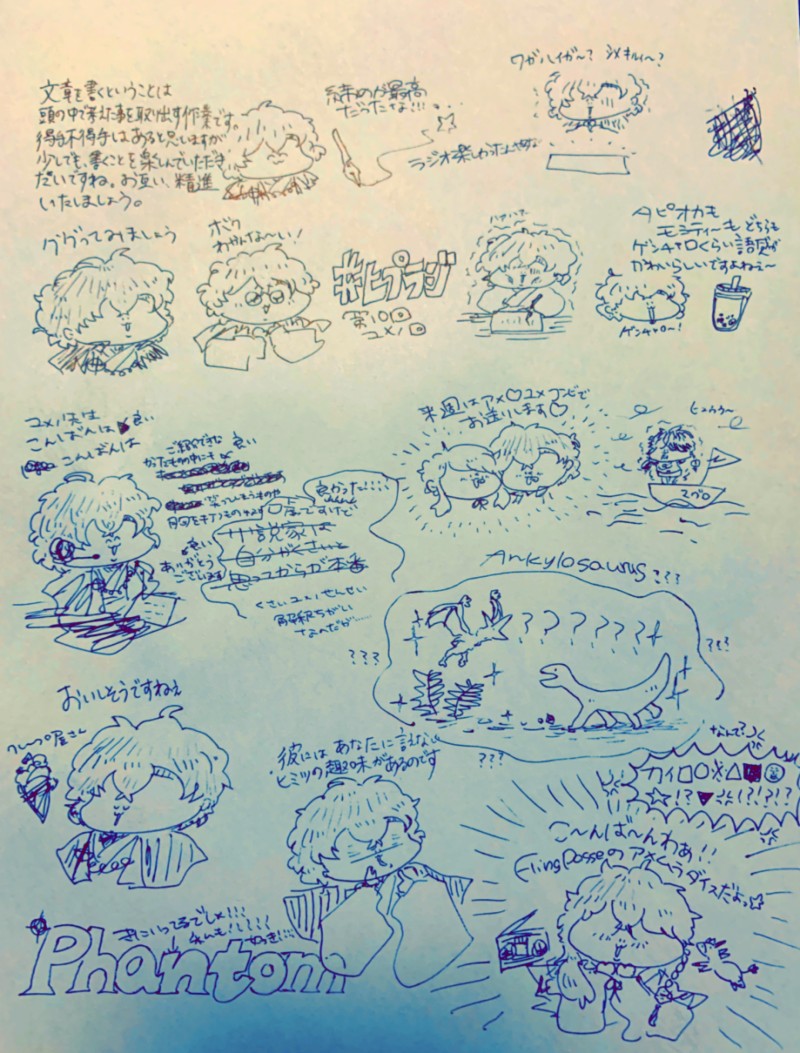 文章を書くということは
頭の中で考えた事を取り出す作業です。
得手不得手はあると思いますが
少しでも、書くことを楽しんでいただき
たいですね。お互い、精進
いたしましょう。
最高
だったさな!!!
ラジオ楽しかったんですな
ワガハイガ〜? シメキリィ〜?
ググってみましょう
ボク
わかんな〜い!
#ヒプラジ
第10回
ユメノ回
タピオカも
モミティーも どちらも
ゲンチャロくらい語感が
かわいらしいですよねぇ〜
ゲンチャロ〜!
ユメノ先生
こんばんは 良い
こんばんは
良い
ありがとう
ございます
来週はアメ♡ユメコンビで
お送りします♡
ヒュウウ〜
スゴロ
良かった!!!!!
小説家は
自分がくさいと
思ってからが本番
くさいユメノせんせい
解釈ちがい
なのだが……
Ankylosaurus???
???????
???
???
???
おいしそうですねぇ
クレープ屋さん
彼には あなたに言えない
ヒミツの趣味があるのです
なんで?
こ〜んば〜んわあ!!
Fling Posseの アメムラダイスだよっ☆
きにいってるでしょ!!!
Phantom